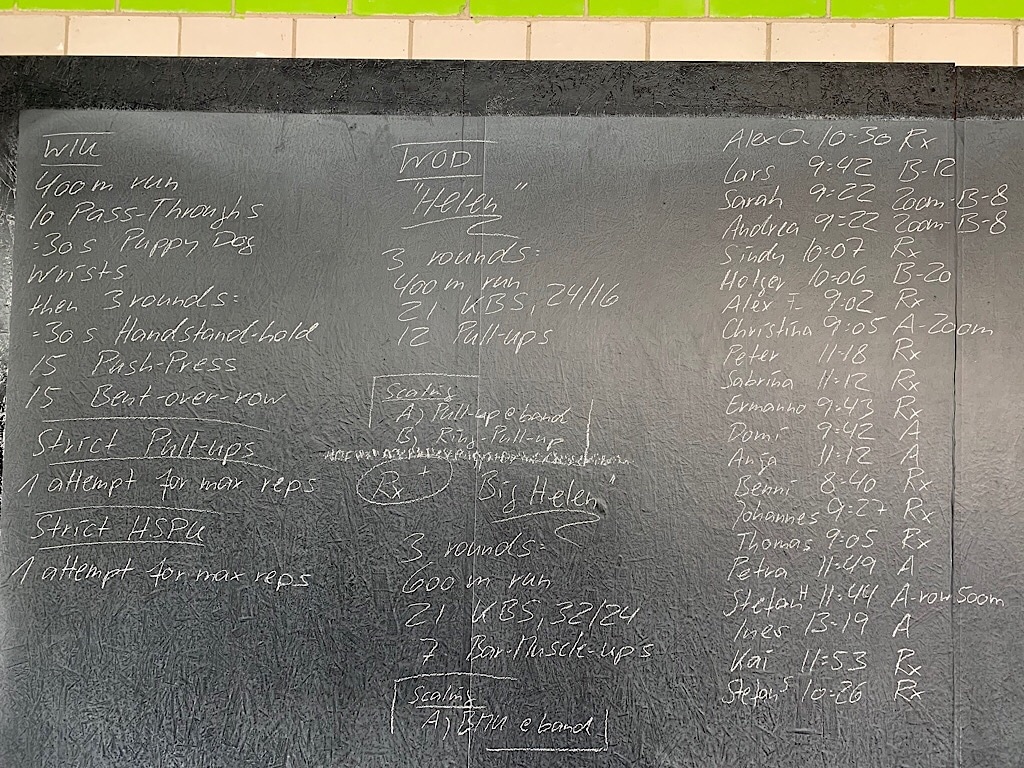 WU
400m run
10 Pass-Throughs
-30s Puppy Dog
wrists
then 3 rounds:
-30s Handstand-hold
15 Push-Press
15 Bent-over-row
Strict Pull-ups
1 attempt for max reps
Strict HSPU
1 attempt for max reps
WOD
"Helen"
3 rounds:
400m run
21 KBS, 24/16
12 Pull-ups
Scaling
A) Pull-up e band
B) Ring-Pull-up
Rx+ "Big Helen"
3 rounds:
600m run
21 KBS, 32/24
7 Bar-Muscle-ups
Scaling
A) BMU e band
Alex O. 10:30 Rx
Lars 9:42 B-12
Sarah 9:22 200m-B-8
Andrea 9:22 200m-B-8
Sindy 10:07 Rx
Holger 10:06 B-20
Alex I. 9:02 Rx
Christina 9:05 A-200m
Peter 11:18 Rx
Sabrina 11:12 Rx
Ermanno 9:43 Rx
Domi 9:42 A
Anja 11:12 A
Benni 8:40 Rx
Johannes 9:27 Rx
Thomas 9:05 Rx
Petra 11:49 A
Stefan H 11:44 A-row 500m
Ines 13:19 A
Kai 11:53 Rx
Stefan S 10:26 Rx